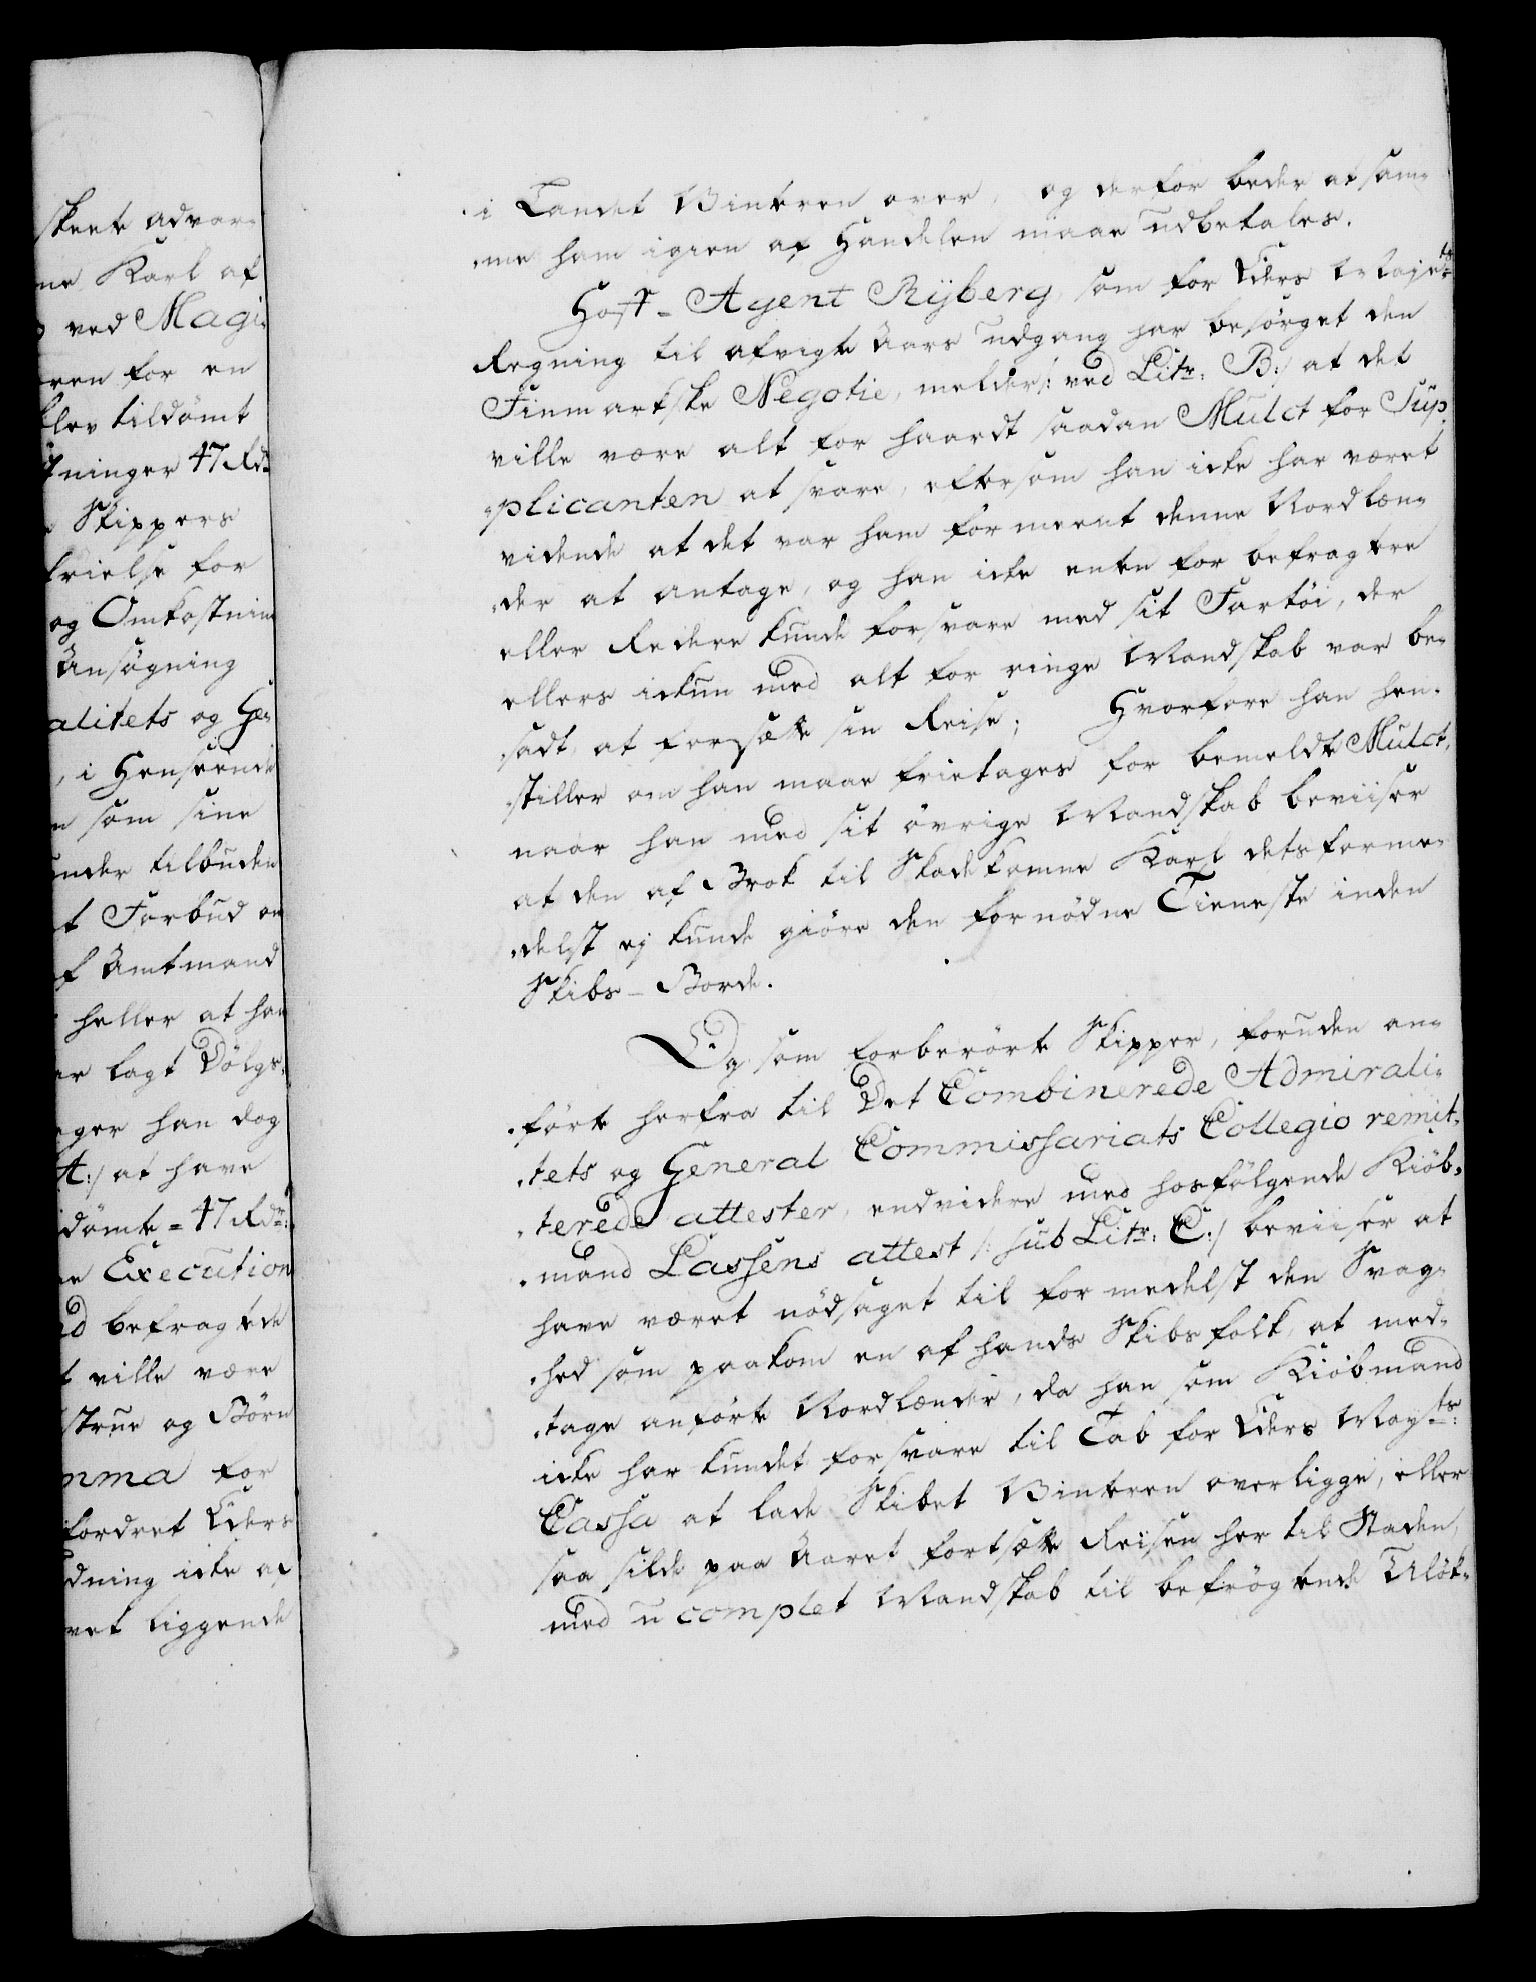 skeete advar-
ne Karl af
ved Magi-
ren for en
blev tildömt
tninger 47 Rdr
Skippers
frielse for
og Omkostnin
Ansögning
alitets og Ge-
, i Henseende
som sine
under tilbuden
t Forbud om
f Amtmand
heller at han
ar lagt Dölgs-
ger han dog
A:/ at have
dömte = 47 Rdr:
ne Execution
befragtede
t ville være
strue og Börn
mma for
fordret Eders
dning icke af
vet liggende
i Landet Vinteren over, og derfor beder at sam-
me ham igien af Handelen maae udbetales.
Hoff-Agent Ryberg, som for Eders Majets:
Regning til afvigte Aars Udgang har besörget den
Finmarkske Negotie, melder /: ved Litr: B:/ at det
ville være alt for haardt saadan Mulct for Sup-
plicanten at svare, eftersom han icke har været
vidende at det var ham formeent denne Nordlæn-
der at antage, og han icke enten for befragtere
eller Redere kunde forsvare med sit Fartöi, der
ellers ickun med alt for ringe Mandskab var be-
sadt, at forsætte sin Reise; Hvorfore han hen-
stiller om han maae frietages for bemeldte Mulct,
naar han med sit övrige Mandskab beviiser
at den af Brok til Skadekomne Karl detsforme-
delst ej kunde giöre den fornödne Tieneste inden
Skibs-Borde.
Og som forberörte Skipper, foruden an-
förte herfra til Det Combinerede Admirali-
tets og General Commissariats Collegio remit-
terede attester, endvidere med hosfölgende Kiöb-
mand Lassens attest /: sub Litr: C:/ beviiser at
have været nödsaget til formedelst den Svag-
hed som paakom en af hands Skibsfolk, at med-
tage anförte Nordlænder, da han som Kiöbmand
icke har kundet forsvare til Tab for Eders Mayts:
Cassa at lade Skibet Vinteren overligge, eller
saa silde paa Aaret fortsætte Reisen her til Staden,
med u complet Mandskab til befrögtende Ulök-